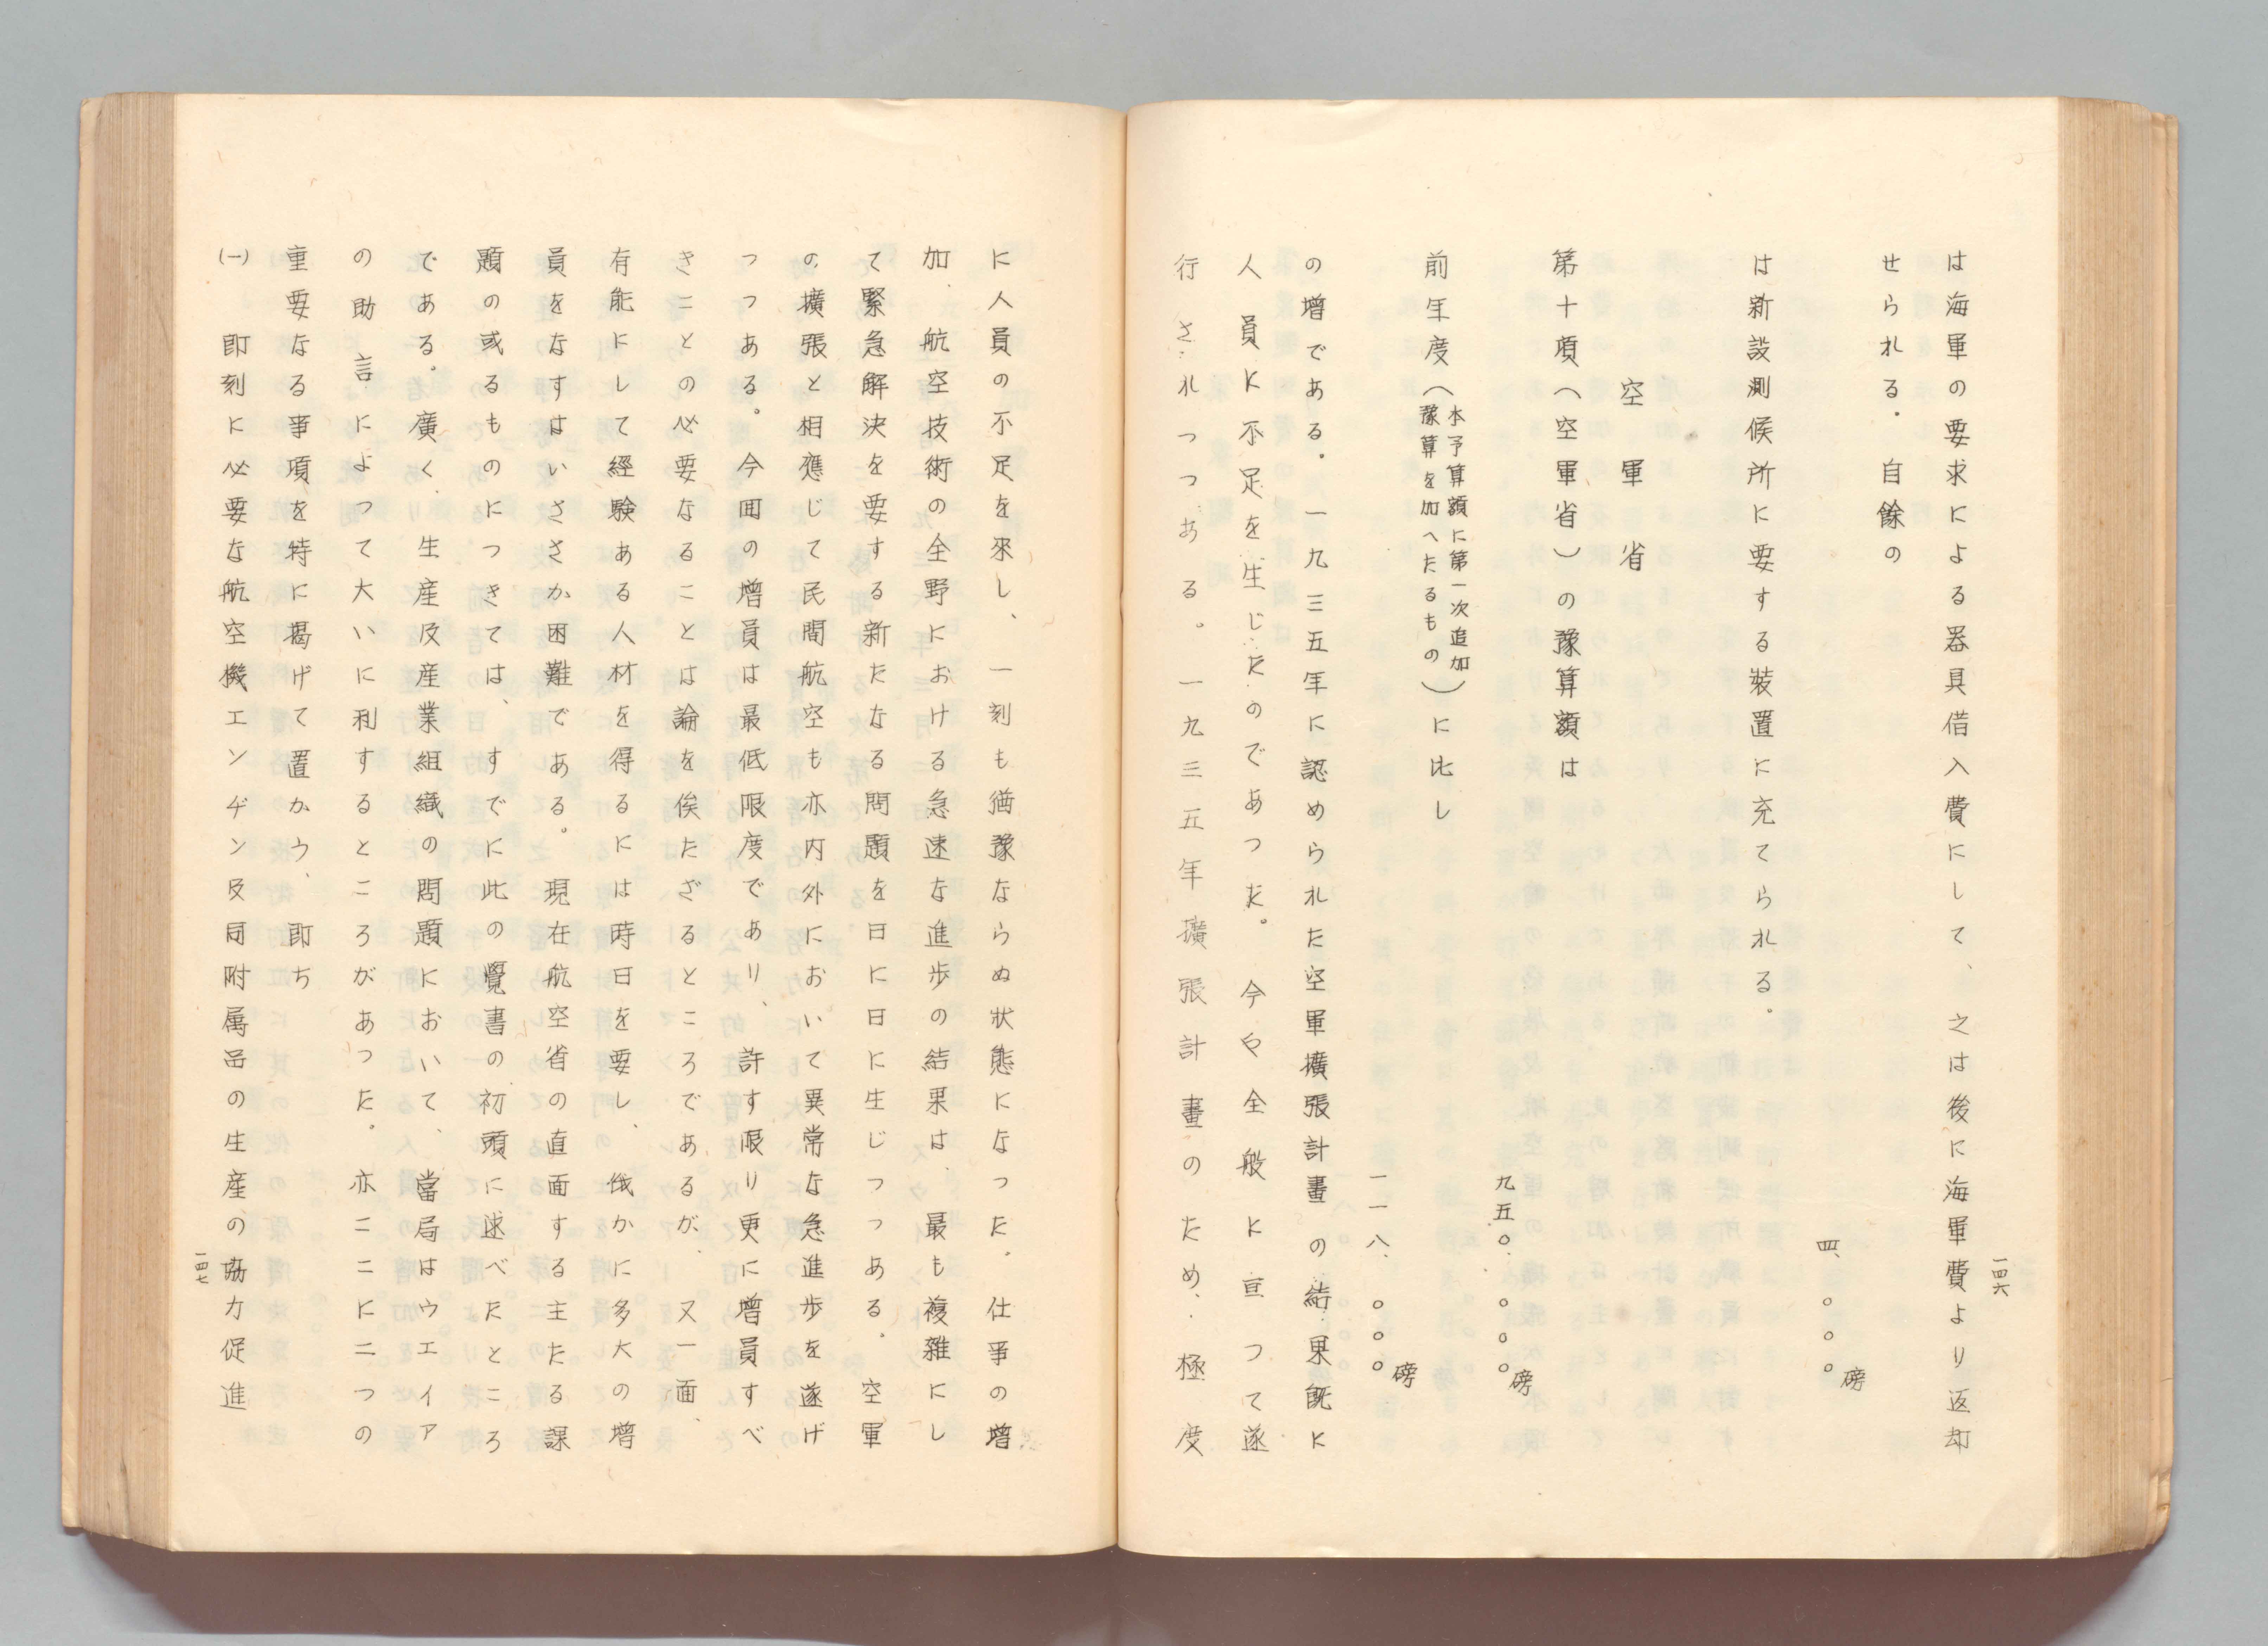 は海軍の要求による器具借入費にして、之は後に海軍費より返却
せられる。自餘の
四、〇〇〇磅
は新設測候所に要する装置に充てられる。
空軍省
第十項（空軍省）の豫算額は
九五〇、〇〇〇磅
前年度（本予算額に第一次追加豫算を加へたるもの）に比し
一一八、〇〇〇磅
の増である。一九三五年に認められた空軍擴張計畫の結果既に
人員に不足を生じたのであつた。今や全般に亘つて遂
行されつつある。一九三五年擴張計畫のため、極度
一四六
に人員の不足を來し、一刻も猶豫ならぬ状態になつた。仕事の増
加、航空技術の全野における急速な進歩の結果は、最も複雑にし
て緊急解決を要する新たなる問題を日に日に生じつつある。空軍
の擴張と相應じて民間航空も亦内外において異常な急進歩を遂げ
つつある。今回の増員は最低限度であり、許す限り更に増員すべ
きことの必要なることは論を俟たざるところであるが、又一面、
有能にして經験ある人材を得るには時日を要し、俄かに多大の増
員をなすはいささか困難である。現在航空省の直面する主たる課
題の或るものにつきては、すでに此の覺書の初頭に述べたところ
である。廣く、生産及産業組織の問題において、當局はウエイア
の助言によつて大いに利するところがあつた。亦ここに二つの
重要なる事項を特に揭げて置かう、即ち
(一)　即刻に必要な航空機エンヂン及同附属品の生産の協力促進
一四七